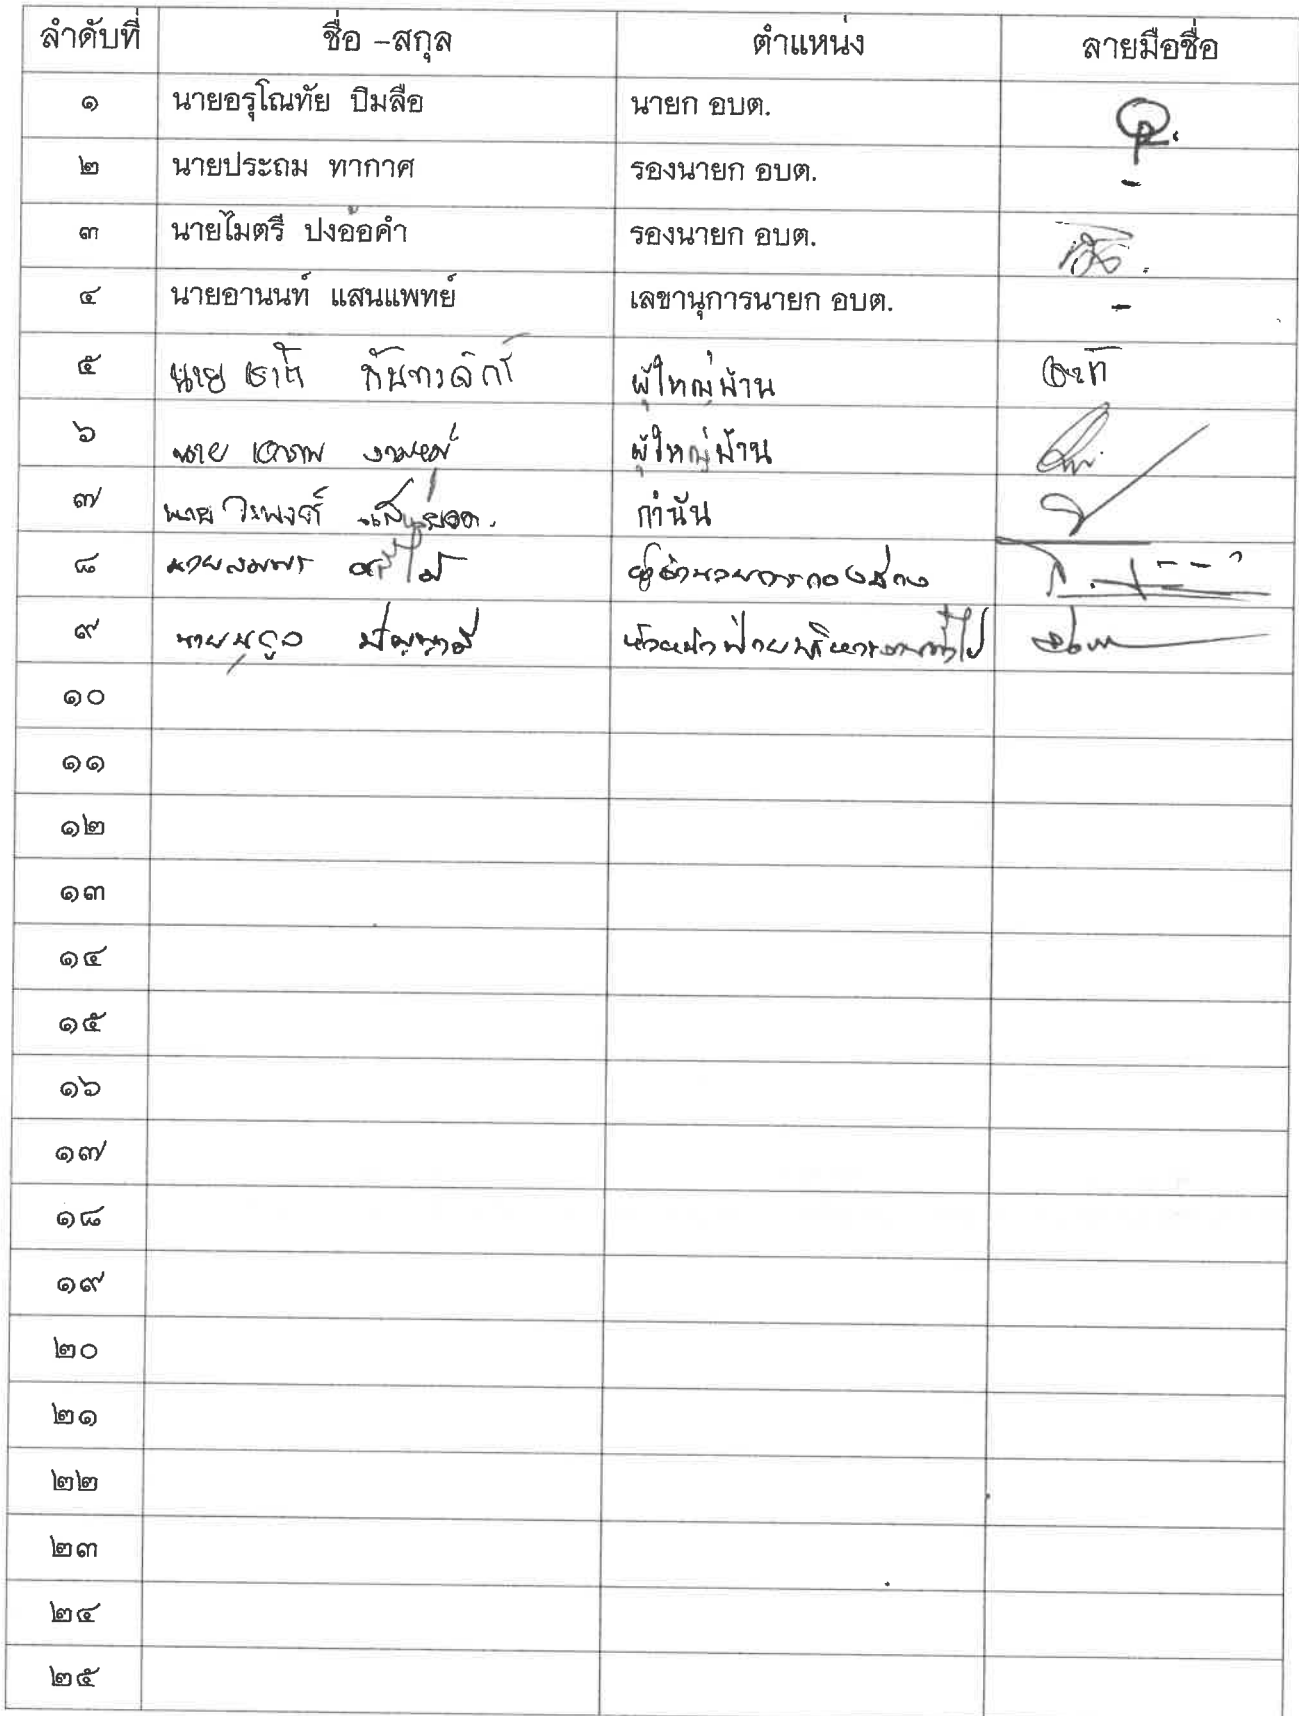 ลำดับที่ ชื่อ -สกุล ตำแหน่ง ลายมือชื่อ
๑ นายอรุโณทัย ปิมลือ นายก อบต.
๒ นายประถม ทากาศ รองนายก อบต. -
๓ นายไมตรี ปงอ้อคำ รองนายก อบต.
๔ นายอานนท์ แสนแพทย์ เลขานุการนายก อบต. -
๕ นาย ผู้ใหญ่บ้าน
๖ นาย ผู้ใหญ่บ้าน
๗ นาย กำนัน
๘ ผู้อำนวยการกองช่าง
๙ นาย หัวหน้าฝ่ายบริหารงานทั่วไป
๑๐
๑๑
๑๒
๑๓
๑๔
๑๕
๑๖
๑๗
๑๘
๑๙
๒๐
๒๑
๒๒
๒๓
๒๔
๒๕